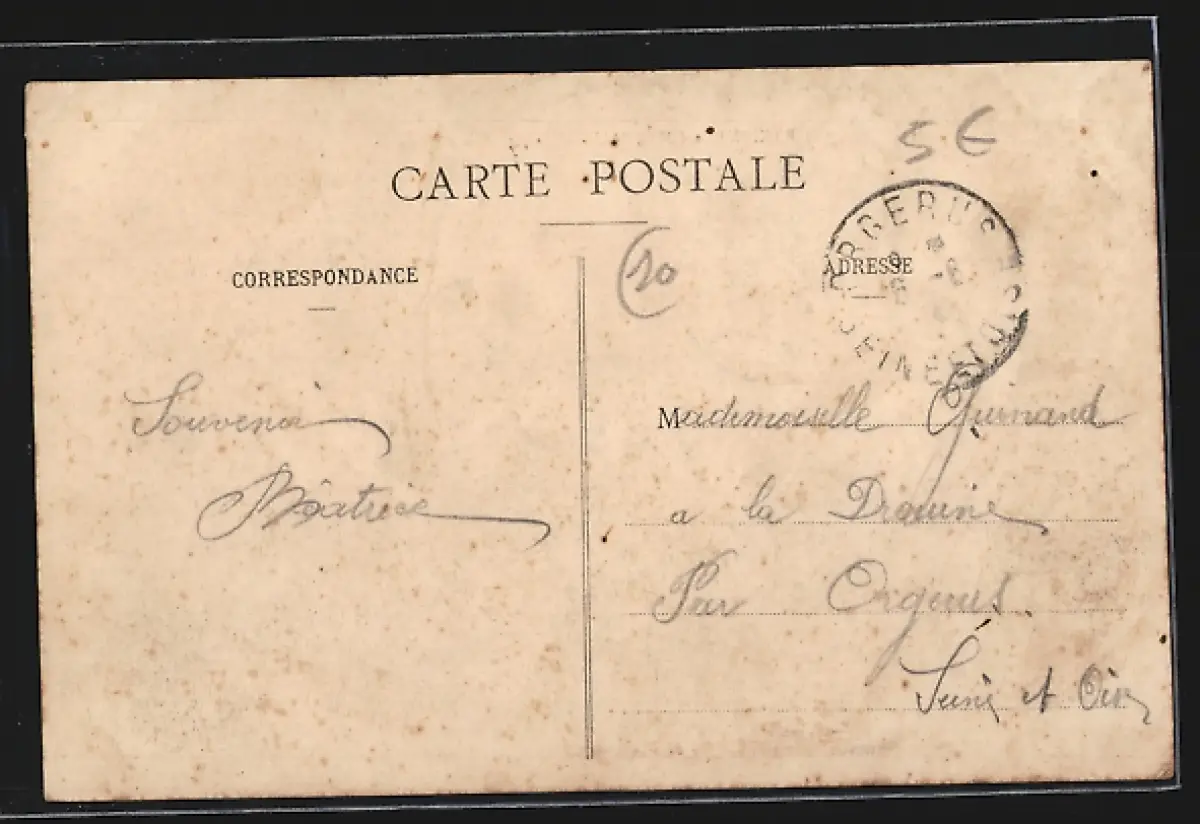 5 €
CARTE POSTALE
20
CORRESPONDANCE
ADRESSE
ORGERUS
SEINE ET O
Souvenir
Béatrice
Mademoiselle Guinand
a la
Par Orgerus
Seine et Oise